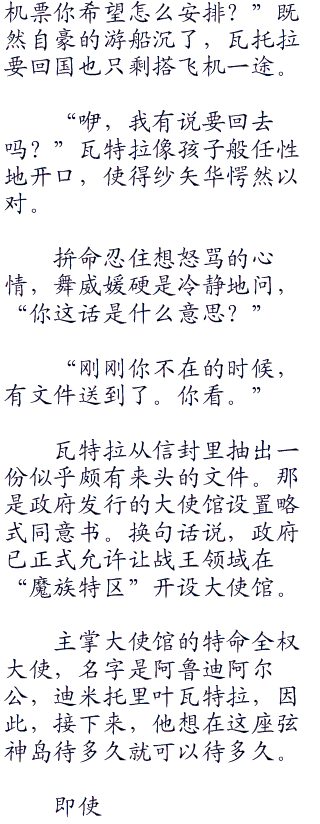 机票你希望怎么安排？”既
然自豪的游船沉了，瓦托拉
要回国也只剩搭飞机一途。
“咿，我有说要回去
吗？”瓦特拉像孩子般任性
地开口，使得纱矢华愕然以
对。
拚命忍住想怒骂的心
情，舞威媛硬是冷静地问，
“你这话是什么意思？”
“刚刚你不在的时候，
有文件送到了。你看。”
瓦特拉从信封里抽出一
份似乎颇有来头的文件。那
是政府发行的大使馆设置略
式同意书。换句话说，政府
已正式允许让战王领域在
“魔族特区”开设大使馆。
主掌大使馆的特命全权
大使，名字是阿鲁迪阿尔
公，迪米托里叶瓦特拉，因
此，接下来，他想在这座弦
神岛待多久就可以待多久。
即使